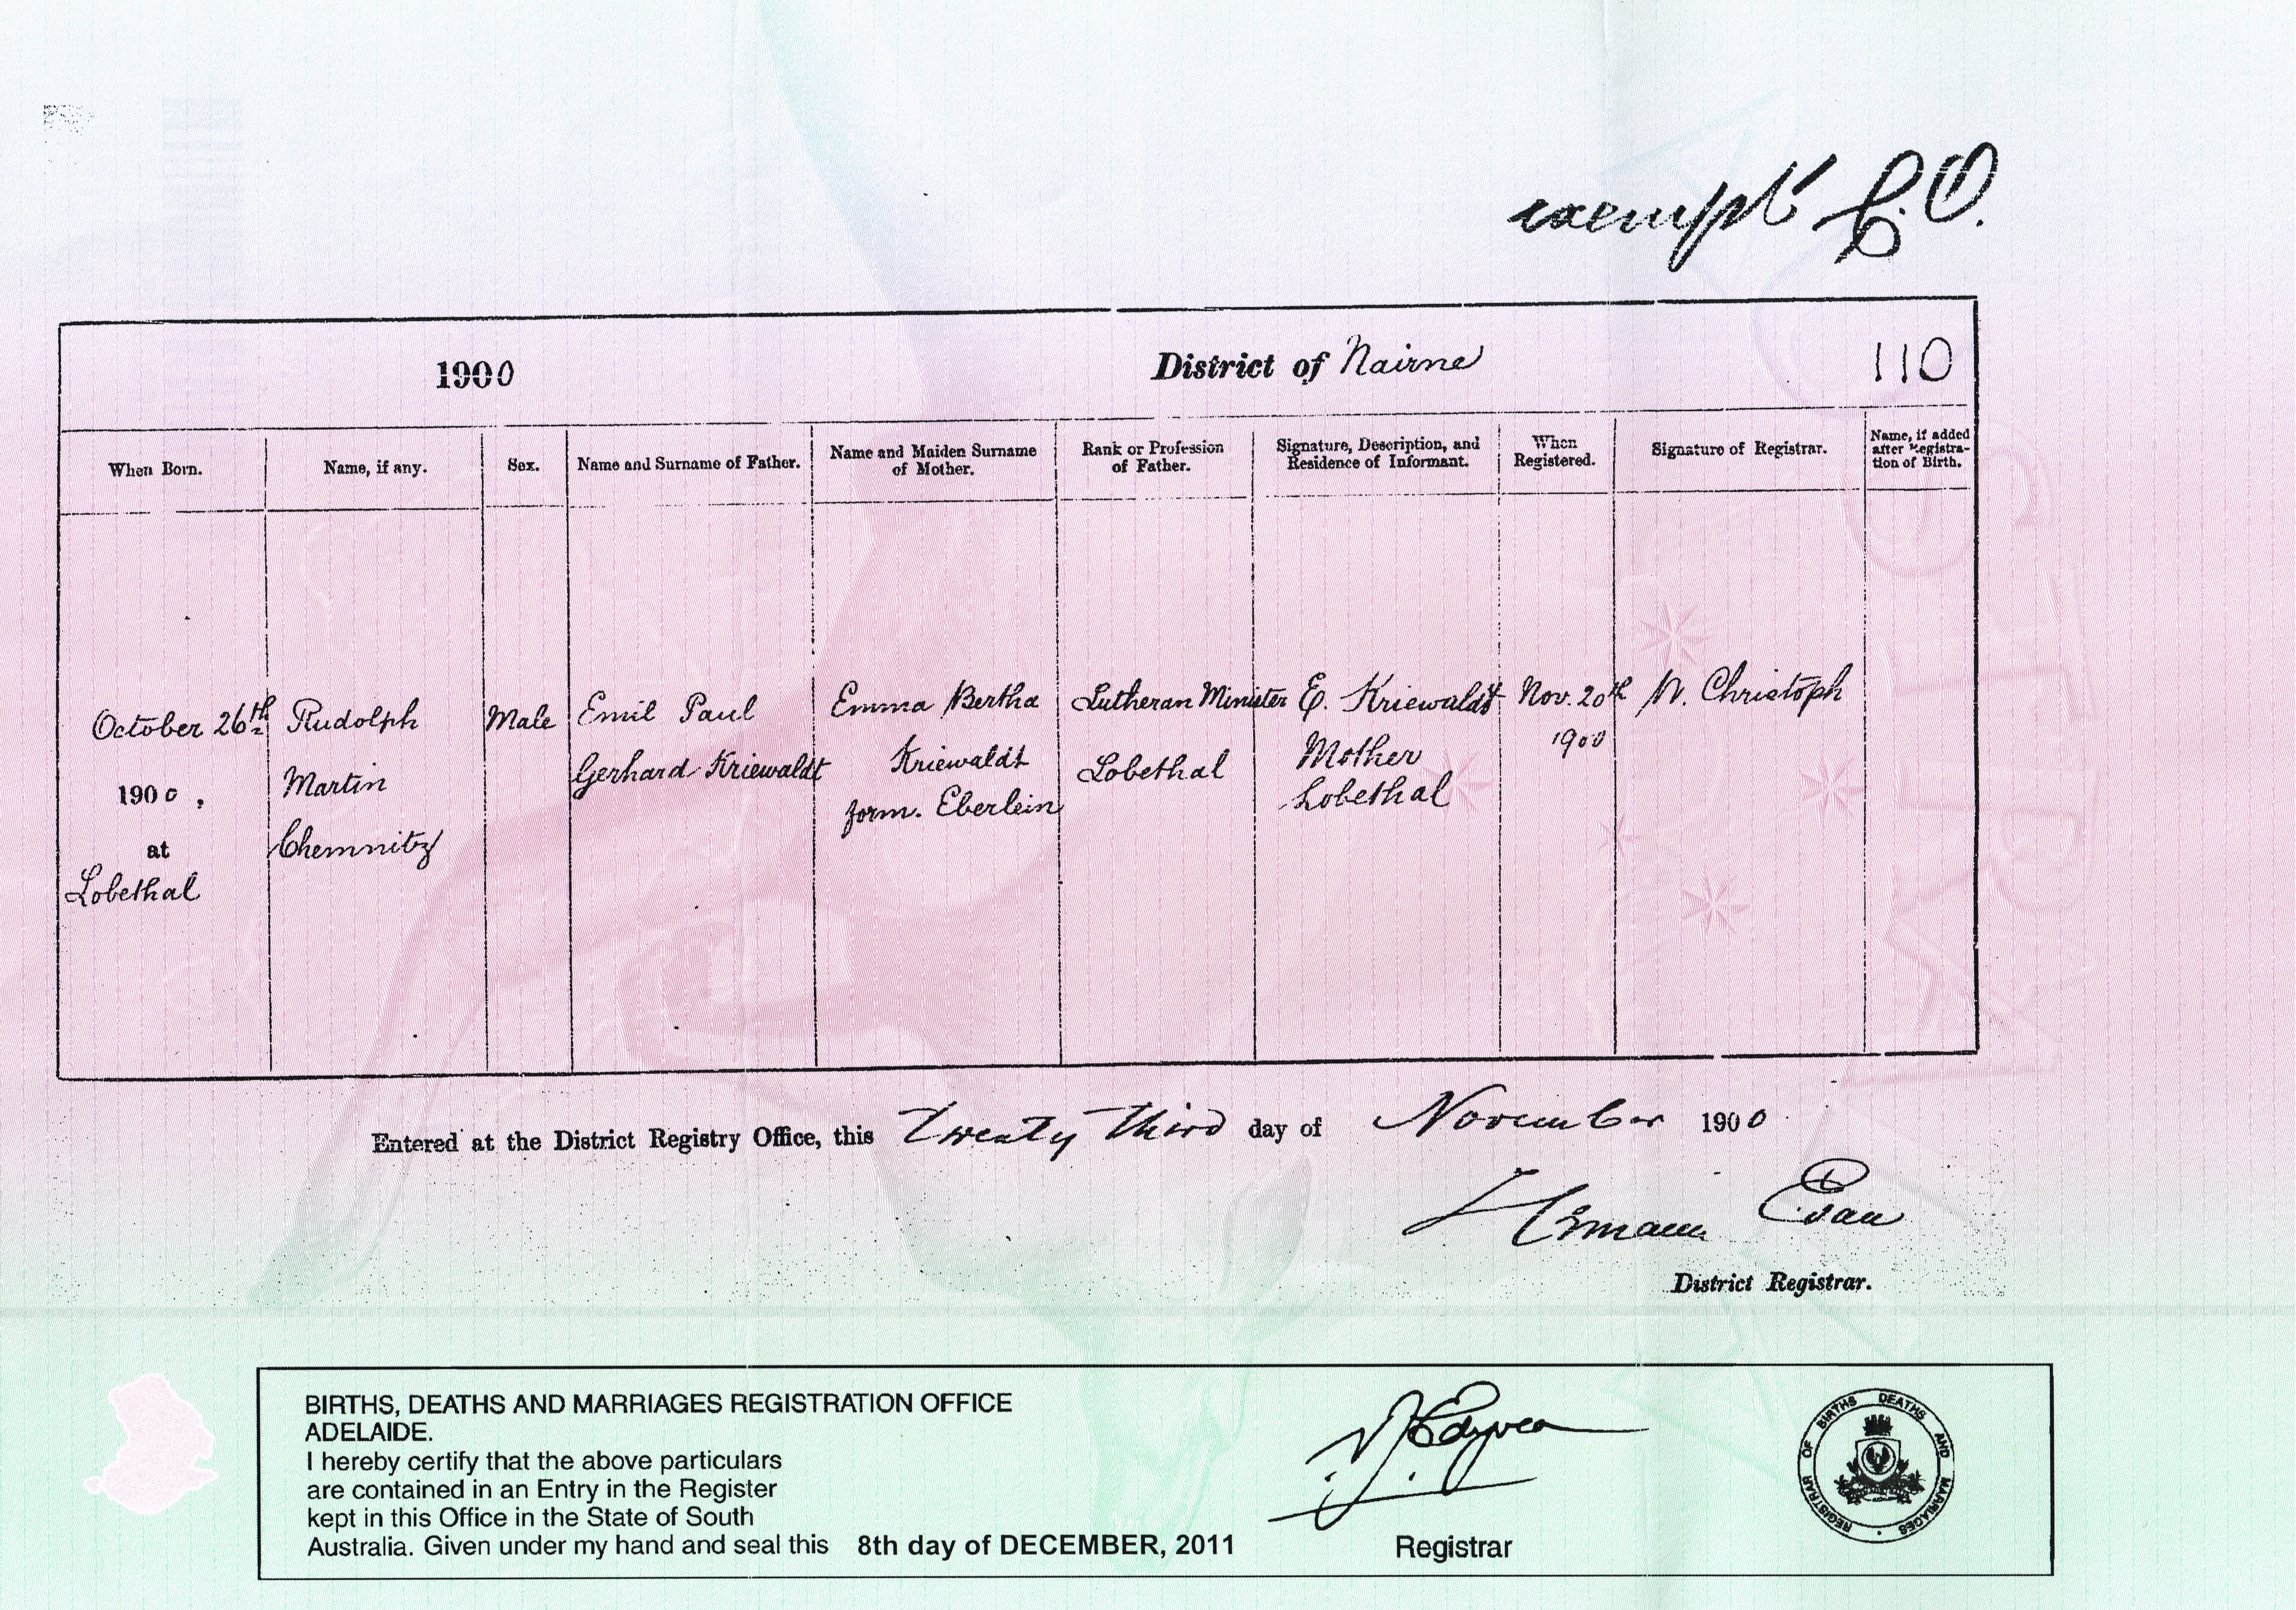 exempt
1900
District of Nairne
110
When Born.
Name, if any.
Sex.
Name and Surname of Father.
Name and Maiden Surname
of Mother.
Rank or Profession
of Father.
Signature, Description, and
Residence of Informant.
When
Registered.
Signature of Registrar.
Name, if added
after Registra-
tion of Birth.
October 26th
1900,
at
Lobethal
Rudolph
Martin
Chemnitz
Male
Emil Paul
Gerhard Kriewaldt
Emma Bertha
Kriewaldt
form. Eberlein
Lutheran Minister
Lobethal
E. Kriewaldt
Mother
Lobethal
Nov. 20th
1900
W. Christoph
Entered at the District Registry Office, this Twenty third day of November 1900
District Registrar.
BIRTHS, DEATHS AND MARRIAGES REGISTRATION OFFICE
ADELAIDE.
I hereby certify that the above particulars
are contained in an Entry in the Register
kept in this Office in the State of South
Australia. Given under my hand and seal this 8th day of DECEMBER, 2011
Registrar
REGISTRAR OF BIRTHS DEATHS AND MARRIAGES